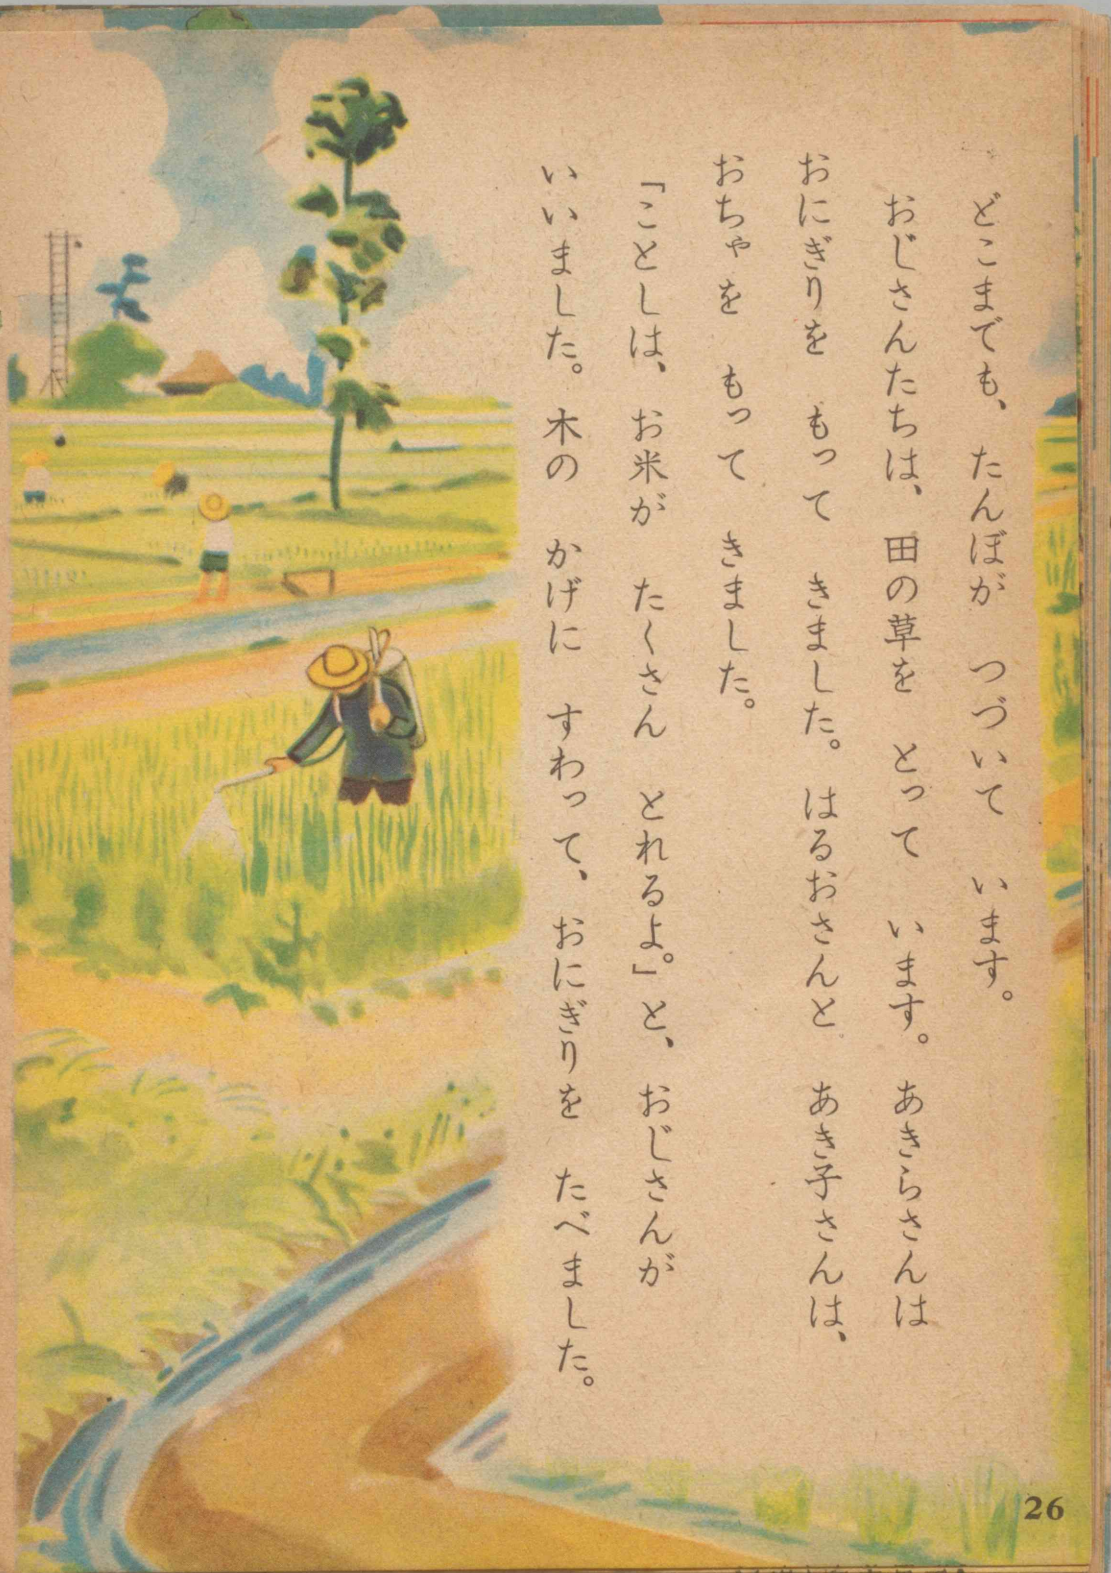 どこまでも、 たんぼが つづいて います。
おじさんたちは、 田の草を とって います。 あきらさんは
おにぎりを もって きました。 はるおさんと あき子さんは、
おちゃを もって きました。
「ことしは、 お米が たくさん とれるよ。」と、 おじさんが
いいました。 木の かげに すわって、 おにぎりを たべました。
26